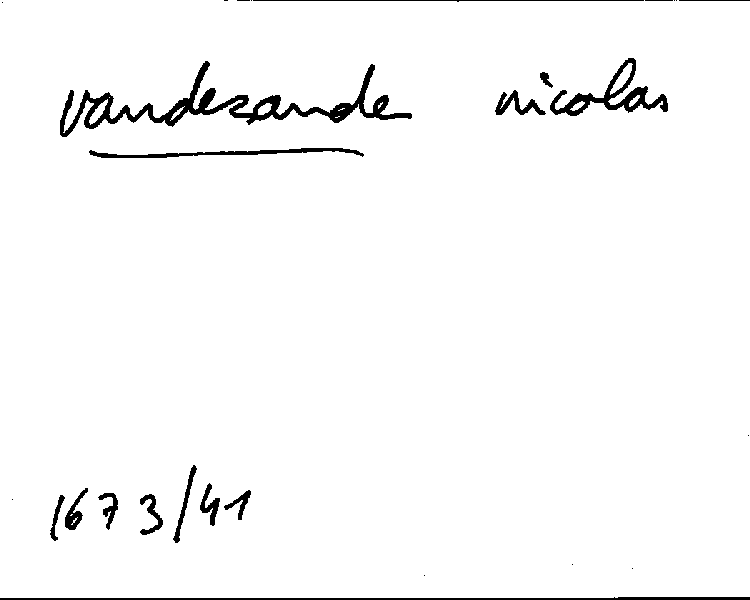 vandezande nicolas
1673/41